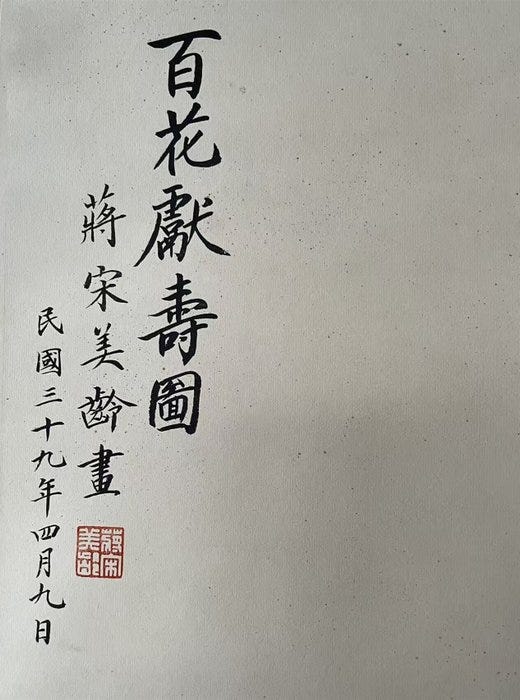 百花獻壽圖
蔣宋美齡畫
民國三十九年四月九日
蔣宋美齡